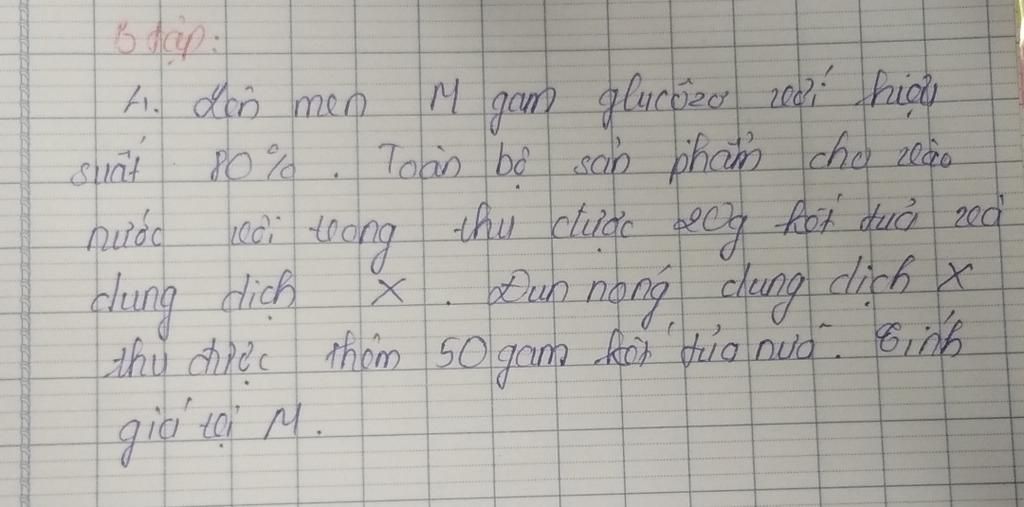 B tập:
1. Lên men M gam glucôzơ với hiệu
suất 80%. Toàn bộ sản phẩm cho vào
nước vôi trong thu được kết tủa và
dung dịch X. Đun nóng dung dịch X
thu được thêm 50 gam kết tủa nữa. Tính
giá trị M.